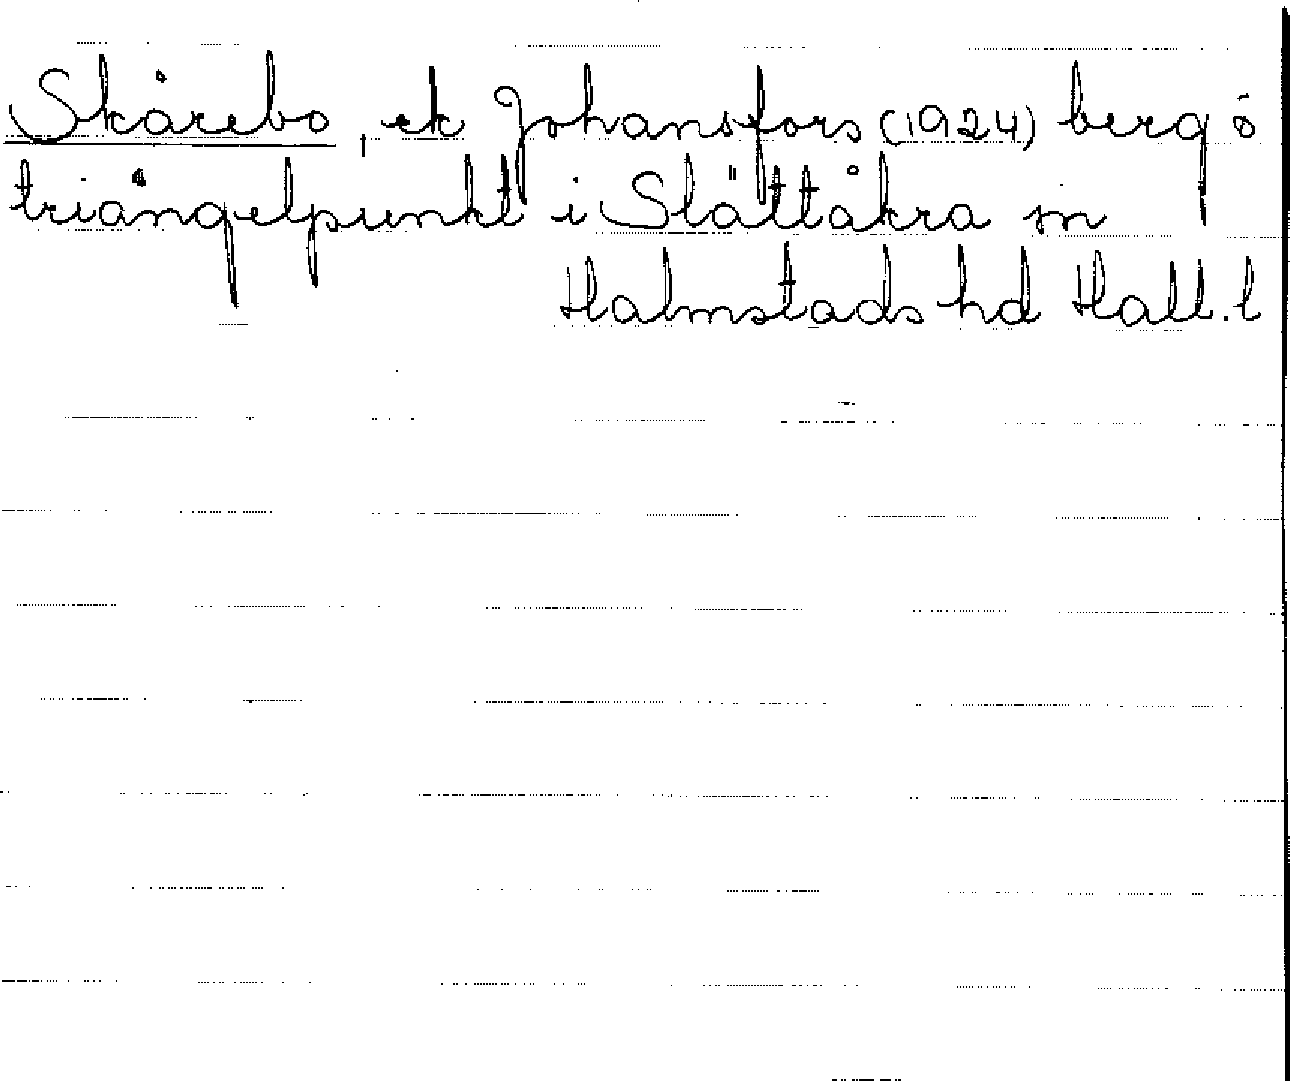 Skårebo, ek Johansfors (1924) berg ö
triängelpunkt i Slättåkra sn
Halmstads hd Hall. l